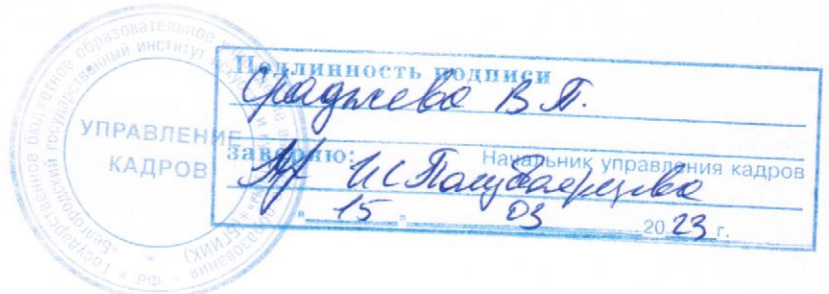 Государственное бюджетное образовательное
Белгородский государственный институт искусств и
образования
* РФ *
(БГИИК)
УПРАВЛЕНИЕ
КАДРОВ
Подлинность подписи
Sраджиева В.П.
заверяю:
Начальник управления кадров
И.С. Полубоярцева
" 15 " 03 20 23 г.